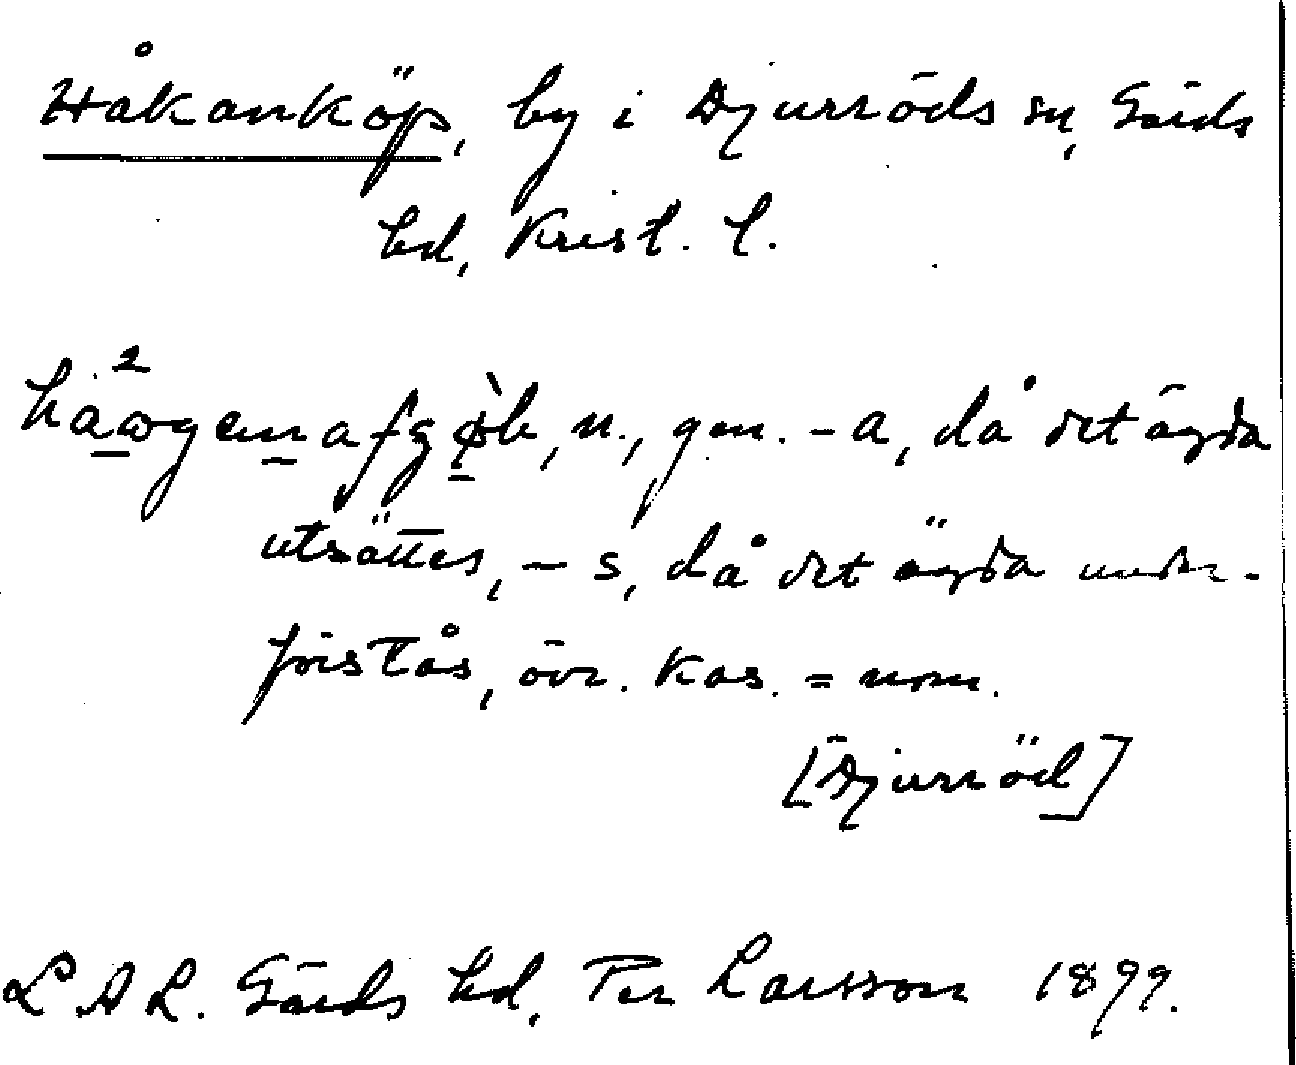 Håkanköp, by i Djurröds sn, Gärds
hd, Krist. l.
n., gen. -a, då det ägda
utsättes, -s, då det ägda under-
förstås, övr. kas. = nom.
[Djurröd]
L A L. Gärds hd, Per Larsson 1899.